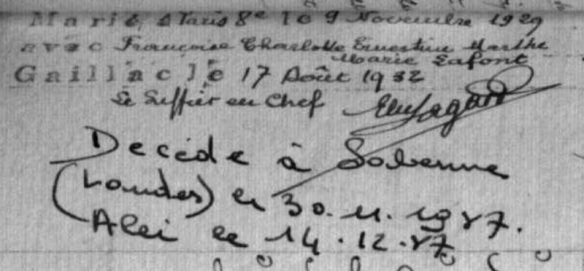 Marié, à Paris 8e le 9 Novembre 1929
avec Françoise Charlotte Ernestine Marthe
Marie Lafont
Gaillac le 17 Août 1932
Le Greffier en Chef
Décédé à
(Landes) le 30.11.1987.
Albi le 14.12.87